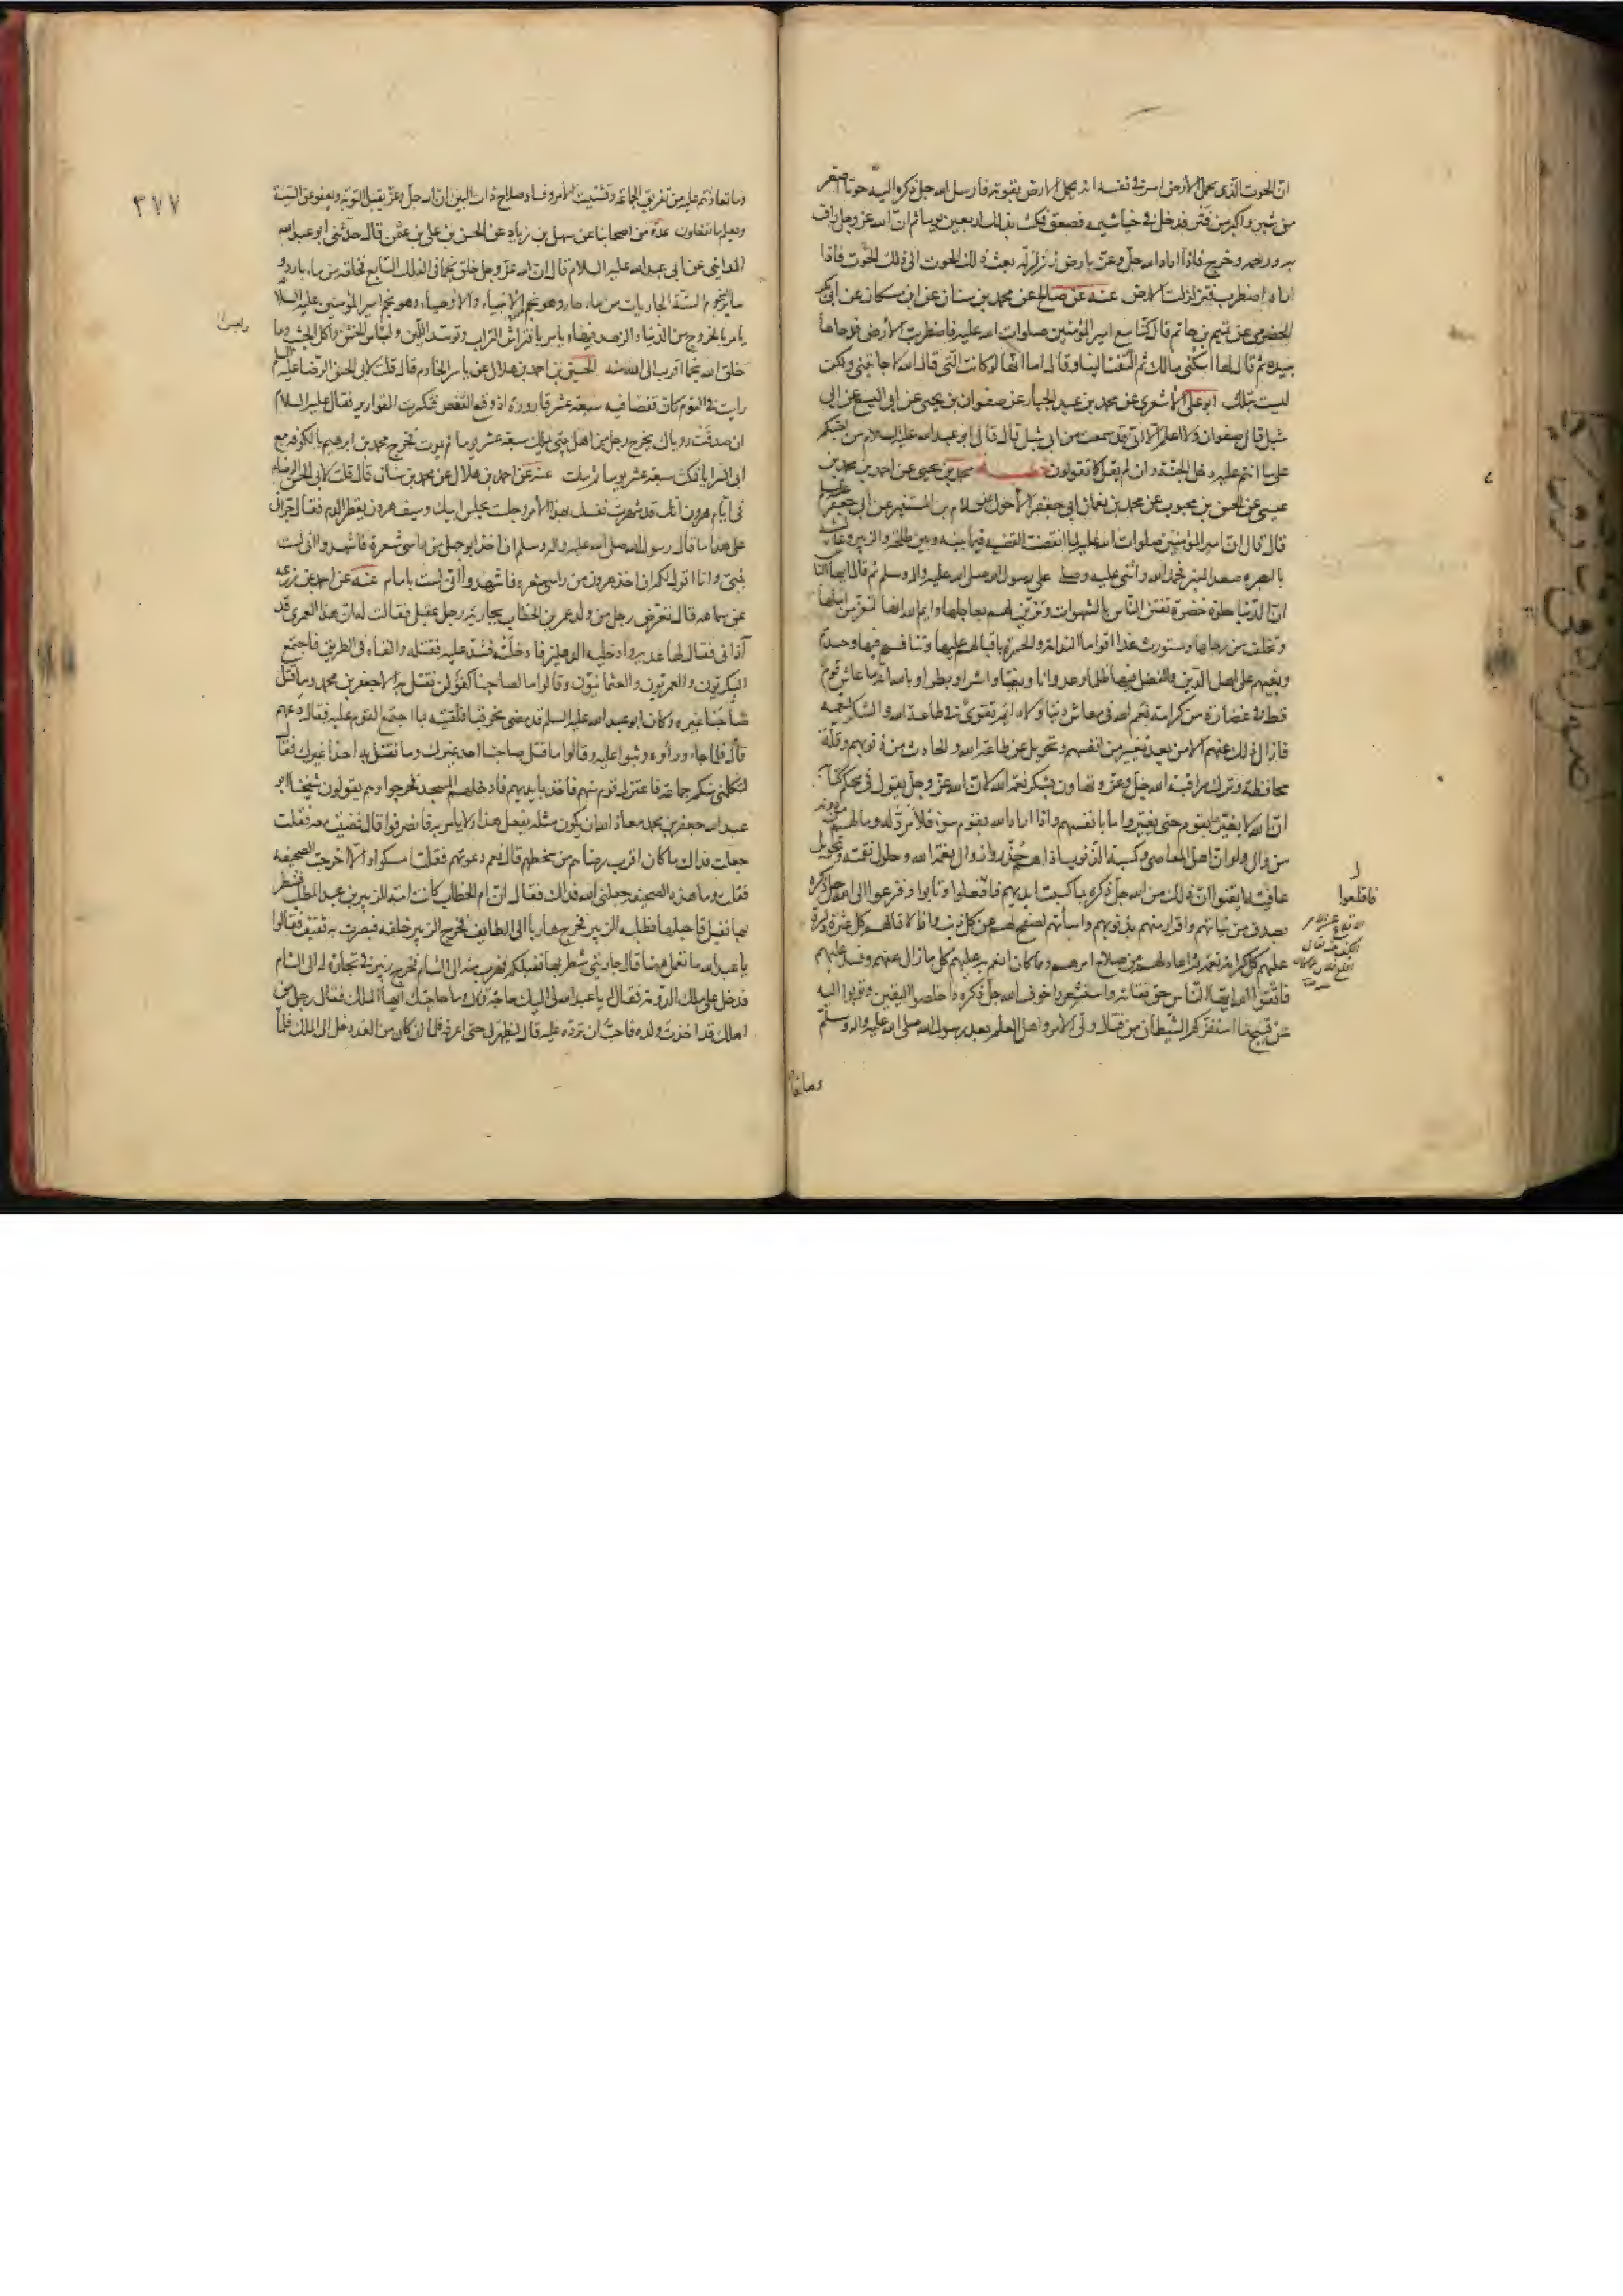 ان الحوت الذي يحمل الارض اسر في نفسه انه يحمل الارض بقوته فارسل الله جل ذكره اليه حوتا اصغر
من شبر واكبر من فتر فدخل في خياشيمه فصعق فمكث بذلك اربعين يوما ثم ان الله عز وجل راف
به ورحمه وخرج فاذا اراد الله جل وعز بارض زلزلة بعث ذلك الحوت الى ذلك الحوت فاذا
راه اضطرب فتزلزلت الارض عنه عن صالح عن محمد بن سنان عن ابن مسكان عن ابي بكر
الحضرمي عن تميم بن حاتم قال كنا مع امير المؤمنين صلوات الله عليه فاضطربت الارض فوحاها
بيده ثم قال لها اسكني مالك ثم التفت الينا وقال اما انها لو كانت التي قال الله لاجابتني ولكن
ليست بتلك ابو علي الاشعري عن محمد بن عبد الجبار عن صفوان بن يحيى عن ابي اليسع عن ابي
شبل قال صفوان ولا اعلم الا اني قد سمعت من ابي شبل قال قال ابو عبد الله عليه السلام من احبكم
على ما انتم عليه دخل الجنة وان لم يقل كما تقولون خطبة محمد بن يحيى عن احمد بن محمد بن
عيسى عن الحسن بن محبوب عن محمد بن نعمان ابي جعفر الاحول عن سلام بن المستنير عن ابي جعفر عليه السلام
قال قال ان امير المؤمنين صلوات الله عليه لما انقضت القصة فيما بينه وبين طلحة والزبير وعايشة
بالبصره صعد المنبر فحمد الله واثنى عليه وصلى على رسول الله صلى الله عليه واله وسلم ثم قال ايها الناس
ان الدنيا حلوة خضرة تفتن الناس بالشهوات وتزين لهم بعاجلها وايم الله انها لتغر من املها
وتخلف من رجاها وستورث غدا اقواما الندامة والحسرة باقبالهم عليها وتنافسهم فيها وحسدهم
وبغيهم على اهل الدين والفضل فيها ظلما وعدوانا وبغيا واشرا وبطرا وبالله انه ما عاش قوم
قط في غضارة من كرامة نعم الله في معاش دنيا ولا دائم تقوى في طاعة الله والشكر لنعمه
فازال ذلك عنهم الا من بعد تغيير من انفسهم وتحويل عن طاعة الله والحادث من ذنوبهم وقلة
محافظة وترك مراقبة الله جل وعز وتهاون بشكر نعم الله لان الله عز وجل يقول في محكم كتابه
ان الله لا يغير ما بقوم حتى يغيروا ما بانفسهم واذا اراد الله بقوم سوء فلا مرد له وما لهم من دونه
من وال ولو ان اهل المعاصي وكسبة الذنوب اذا هم حذروا زوال نعم الله وحلول نقمته وتحويل
عافيته ايقنوا ان ذلك من الله جل ذكره بما كسبت ايديهم فاقلعوا وتابوا وفزعوا الى الله جل ذكره
بصدق من نياتهم واقرار منهم بذنوبهم واساءتهم لصفح لهم عن كل ذنب واذا لاقالهم كل عثرة ولرد
عليهم كل كرامة نعمة ثم اعاد لهم من صلاح امرهم ومما كان انعم به عليهم كل ما زال عنهم وفسد عليهم
فاتقوا الله ايها الناس حق تقاته واستشعروا خوف الله جل ذكره واخلصوا اليقين وتوبوا اليه
من قبيح ما استفزكم الشيطان من قتال ولي الامر واهل العلم بعد رسول الله صلى الله عليه واله وسلم
وما تعا
فاقلعوا
٣٧٧
وما تعاونتم عليه من تفريق الجماعة وتشتيت الامر وفساد صلاح ذات البين ان الله جل وعز يقبل التوبة ويعفو عن السيئة
ويعلم ما تفعلون عدة من اصحابنا عن سهل بن زياد عن الحسن بن علي بن عثمن قال حدثني ابو عبد الله
المدايني عن ابي عبد الله عليه السلام قال ان الله عز وجل خلق نجما في الفلك السابع فخلقه من ماء بارد و
ساير النجوم الستة الجاريات من ماء حار وهو نجم الانبياء والاوصياء وهو نجم امير المؤمنين عليه السلام
يامر بالخروج من الدنيا والزهد فيها ويامر بافتراش التراب وتوسد اللبن ولباس الخشن واكل الجشب وما
خلق الله نجما اقرب الى الله منه الحسين بن احمد بن هلال عن ياسر الخادم قال قلت لابي الحسن الرضا عليه السلم
رايت في النوم كان قفصا فيه سبعة عشر قارورة اذ وقع القفص فتكسرت القوارير فقال عليه السلام
ان صدقت روياك يخرج رجل من اهل بيتي يملك سبعة عشر يوما ثم يموت فخرج محمد بن ابرهيم بالكوفه مع
ابي السرايا فمكث سبعة عشر يوما ثم مات عنه عن احمد بن هلال عن محمد بن سنان قال قلت لابي الحسن الرضا
في ايام هرون انك قد شهرت نفسك بهذا الامر وجلست مجلس ابيك وسيف هرون يقطر الدم فقال جراني
على هذا ما قال رسول الله صلى الله عليه واله وسلم ان اخذ ابو جهل من راسي شعرة فاشهدوا اني لست
بنبي وانا اقول لكم ان اخذ هرون من راسي شعرة فاشهدوا اني لست بامام عنه عن احمد عن زرعه
عن سماعه قال تعرض رجل من ولد عمر بن الخطاب بجارية رجل عقيلي فقالت له ان هذا العمري قد
آذاني فقال لها عديه وادخليه الدهليز فادخلته فشد عليه فقتله والقاه في الطريق فاجتمع
البكريون والعمريون والعثمانيون وقالوا ما لصاحبنا كفؤ لن نقتل به الا جعفر بن محمد وما قتل
صاحبنا غيره وكان ابو عبد الله عليه السلم قد مضى نحو قبا فلقيته بما اجتمع القوم عليه فقال دعهم
قال فلما جاء وراوه وثبوا عليه وقالوا ما قتل صاحبنا احد غيرك وما نقتل به احدا غيرك فقال
لتكلمني منكم جماعة فاعتزل قوم منهم فاخذ بايديهم فادخلهم المسجد فخرجوا وهم يقولون شيخنا ابو
عبد الله جعفر بن محمد معاذ الله ان يكون مثله يفعل هذا ولا يامر به فانصرفوا قال فمضيت معه فقلت
جعلت فداك ما كان اقرب رضاهم من سخطهم قال نعم دعوتهم فقلت امسكوا والا اخرجت الصحيفه
فقلت وما هذه الصحيفه جعلني الله فداك فقال ان ام الخطاب كانت امة للزبير بن عبد المطلب فشطر
بها نفيل فاحبلها فطلبه الزبير فخرج هاربا الى الطايف فخرج الزبير خلفه فبصرت به ثقيف فقالوا
يا عبد الله ما تعمل ههنا قال جاريتي شطر بها نفيلكم فهرب منه الى الشام فخرج زبير في تجارة له الى الشام
فدخل على ملك الدومة فقال له يا عبد الله لي اليك حاجة قال وما حاجتك ايها الملك فقال رجل من
اهلك قد اخذت ولده فاحب ان ترده عليه قال ليظهر لي حتى اعرفه فلما ان كان من الغد دخل الى الملك فلما